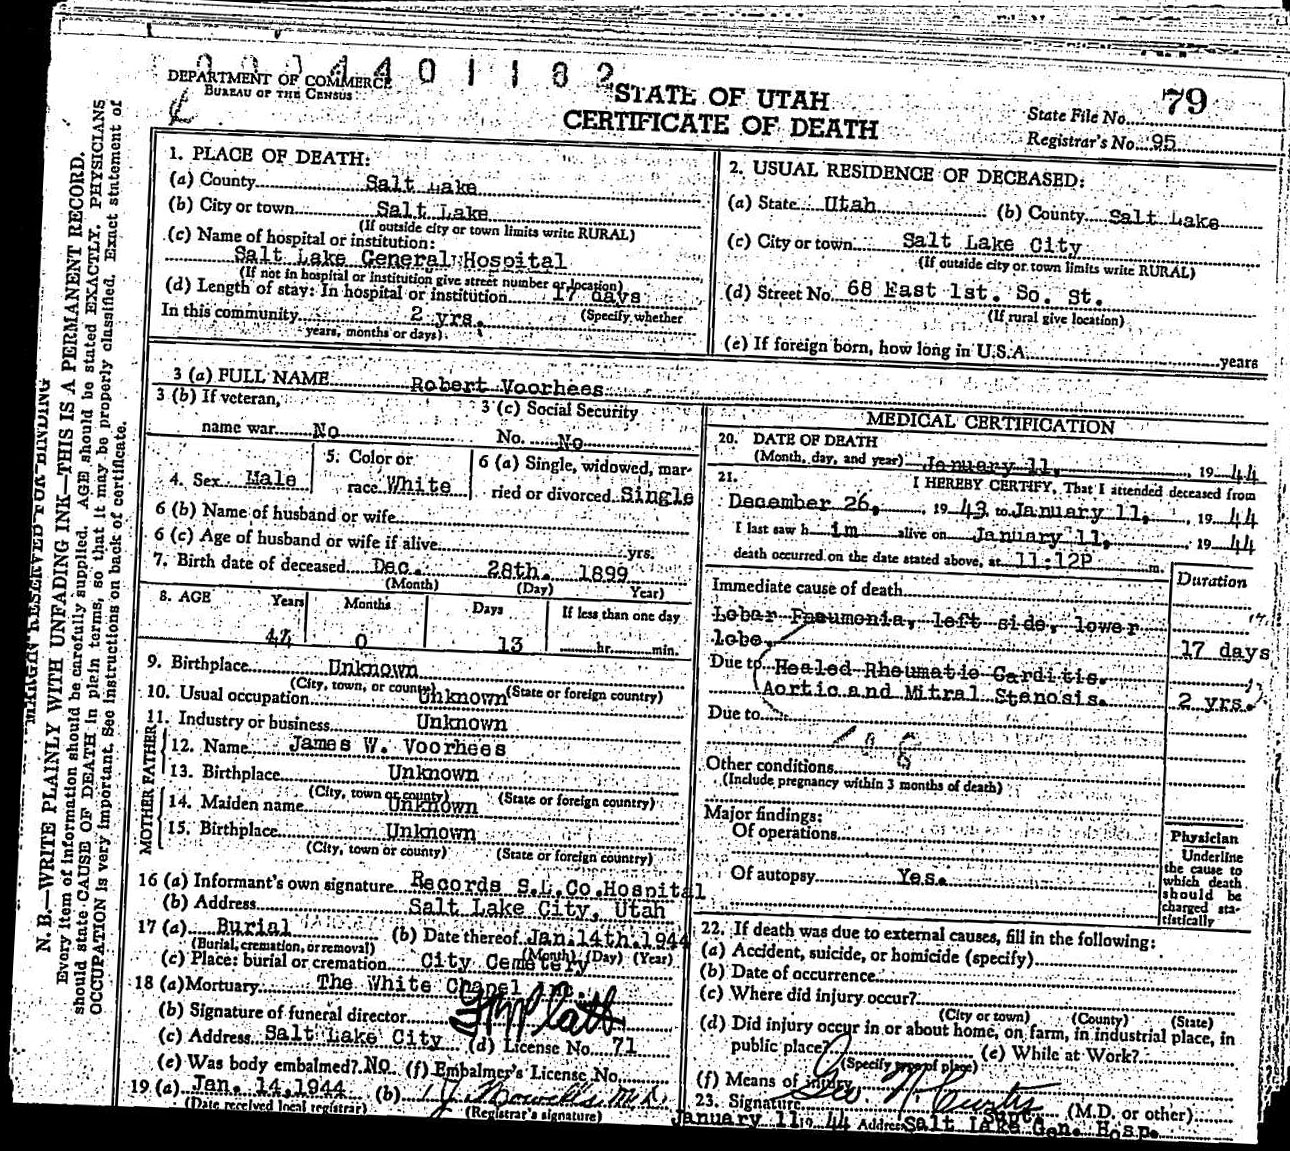 DEPARTMENT OF COMMERCE
BUREAU OF THE CENSUS
STATE OF UTAH
CERTIFICATE OF DEATH
State File No. 79
Registrar's No. 95
N. B.—WRITE PLAINLY WITH UNFADING INK—THIS IS A PERMANENT RECORD.
Every item of information should be carefully supplied. AGE should be stated EXACTLY. PHYSICIANS
should state CAUSE OF DEATH in plain terms, so that it may be properly classified. Exact statement of
OCCUPATION is very important. See instructions on back of certificate.
1. PLACE OF DEATH:
(a) County Salt Lake
(b) City or town Salt Lake
(If outside city or town limits write RURAL)
(c) Name of hospital or institution:
Salt Lake General Hospital
(If not in hospital or institution give street number or location)
(d) Length of stay: In hospital or institution 17 days
In this community 2 yrs. (Specify whether
years, months or days)
2. USUAL RESIDENCE OF DECEASED:
(a) State Utah (b) County Salt Lake
(c) City or town Salt Lake City
(If outside city or town limits write RURAL)
(d) Street No. 68 East 1st. So. St.
(If rural give location)
(e) If foreign born, how long in U.S.A. years
3 (a) FULL NAME Robert Voorhees
3 (b) If veteran,
name war No
3 (c) Social Security
No. No
4. Sex Male
5. Color or
race White
6 (a) Single, widowed, mar-
ried or divorced Single
6 (b) Name of husband or wife
6 (c) Age of husband or wife if alive yrs.
7. Birth date of deceased Dec. 28th. 1899
(Month) (Day) Year)
8. AGE Years Months Days If less than one day
44 0 13 hr. min.
9. Birthplace Unknown
(City, town, or county) (State or foreign country)
10. Usual occupation Unknown
11. Industry or business Unknown
FATHER
12. Name James W. Voorhees
13. Birthplace Unknown
(City, town or county) (State or foreign country)
MOTHER
14. Maiden name Unknown
15. Birthplace Unknown
(City, town or county) (State or foreign country)
16 (a) Informant's own signature Records S.L.Co.Hospital
(b) Address Salt Lake City, Utah
17 (a) Burial (b) Date thereof Jan.14th.1944
(Burial, cremation, or removal) (Month) (Day) (Year)
(c) Place: burial or cremation City Cemetery
18 (a) Mortuary The White Chapel
(b) Signature of funeral director
(c) Address Salt Lake City (d) License No. 71
(e) Was body embalmed? No (f) Embalmer's License No.
19 (a) Jan. 14,1944 (b)
(Date received local registrar) (Registrar's signature)
MEDICAL CERTIFICATION
20. DATE OF DEATH
(Month, day, and year) January 11, 19 44
21. I HEREBY CERTIFY, That I attended deceased from
December 26, 19 43 to January 11, 19 44
I last saw h im alive on January 11, 19 44
death occurred on the date stated above, at 11:12P m.
Duration
Immediate cause of death
Lobar Pneumonia, left side, lower
lobe 17 days
Due to Healed Rheumatic Carditis.
Aortic and Mitral Stenosis. 2 yrs.
Due to
Other conditions
(Include pregnancy within 3 months of death)
Major findings:
Of operations
Of autopsy Yes.
Physician
Underline
the cause to
which death
should be
charged sta-
tistically
22. If death was due to external causes, fill in the following:
(a) Accident, suicide, or homicide (specify)
(b) Date of occurrence
(c) Where did injury occur?
(City or town) (County) (State)
(d) Did injury occur in or about home, on farm, in industrial place, in
public place? (e) While at Work?
(Specify type of place)
(f) Means of injury
23. Signature Geo N. Curtis (M.D. or other)
Supt.
January 11 19 44 Address Salt Lake Gen. Hosp.